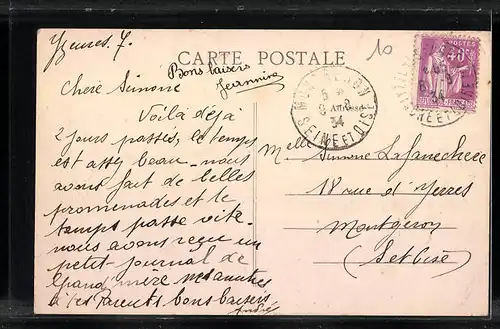 Yzeures. 7.
CARTE POSTALE
10
Bons baisers
Jeannine
Chère Simone
Voilà déjà
2 jours passés, le temps
est assez beau - nous
avons fait de belles
promenades et le
temps passe vite.
nous avons reçu un
petit journal de
Grand mère
à tes Parents bons baisers
Melle Simone
18 rue d'Yerres
Montgeron
(S et Oise)
SEINE ET OISE
34
POSTES